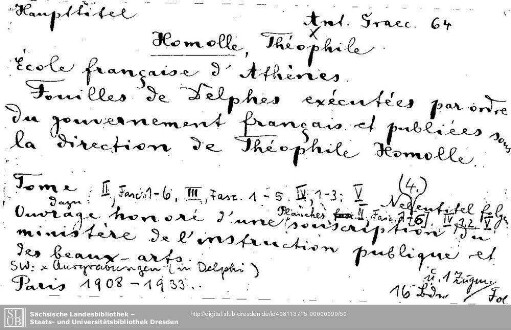 Haupttitel
Ant. Graec. 64
Homolle, Théophile
École française d'Athènes.
Fouilles de Delphes exécutées par ordre
du gouvernement français et publiées sous
la direction de Théophile Homolle.
Tome II, Fasc. 1-6, III, Fasc. 1-5 IV, 1-3; V
(4.)
dazu: Planches II, Fasc.
Ouvrage honoré d'une souscription du
ministère de l'instruction publique et
des beaux-arts
SW: x Ausgrabungen (in Delphi)
Paris 1908-1933.
16 Bde
Fol
Sächsische Landesbibliothek –
Staats- und Universitätsbibliothek Dresden